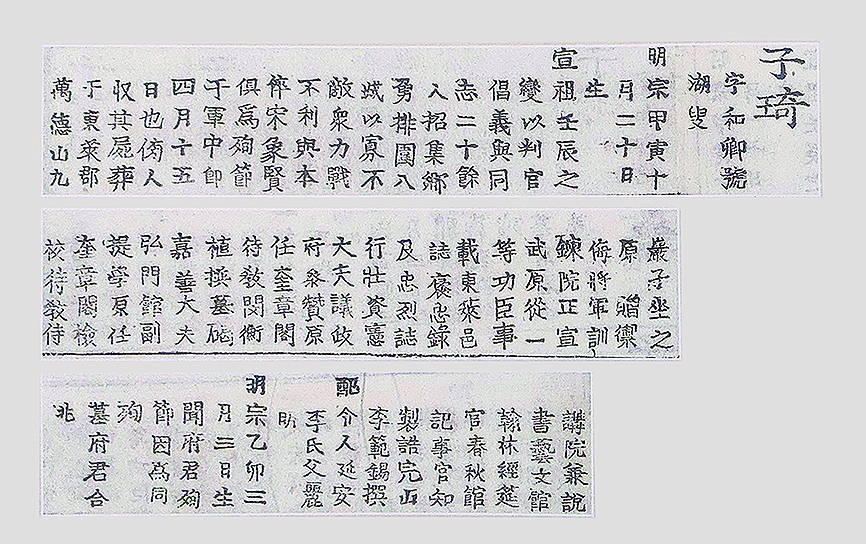 子琦
字和卿號
湖叟
明宗甲寅十
月二十日
生
宣祖壬辰之
變以判官
倡義與同
志二十餘
人招集鄉
勇排圍入
城以寡不
敵衆力戰
不利與本
倅宋象賢
俱爲殉節
于軍中卽
四月十五
日也傍人
収其屍葬
于東萊郡
萬德山九
巖子坐之
原 贈禦
侮將軍訓
鍊院正宣
武原從一
等功臣事
載東萊邑
誌褒忠錄
及忠烈誌
行壯資憲
大夫議政
府參贊原
任奎章閣
待敎閔衡
植撰墓碣
嘉善大夫
弘門館副
提學原任
奎章閣檢
校待敎侍
講院兼說
書藝文館
翰林經筵
官春秋館
記事官知
製誥完山
李範錫撰
配令人延安
李氏父麗
明宗乙卯三
月三日生
聞府君殉
節因爲同
殉
墓府君合
兆